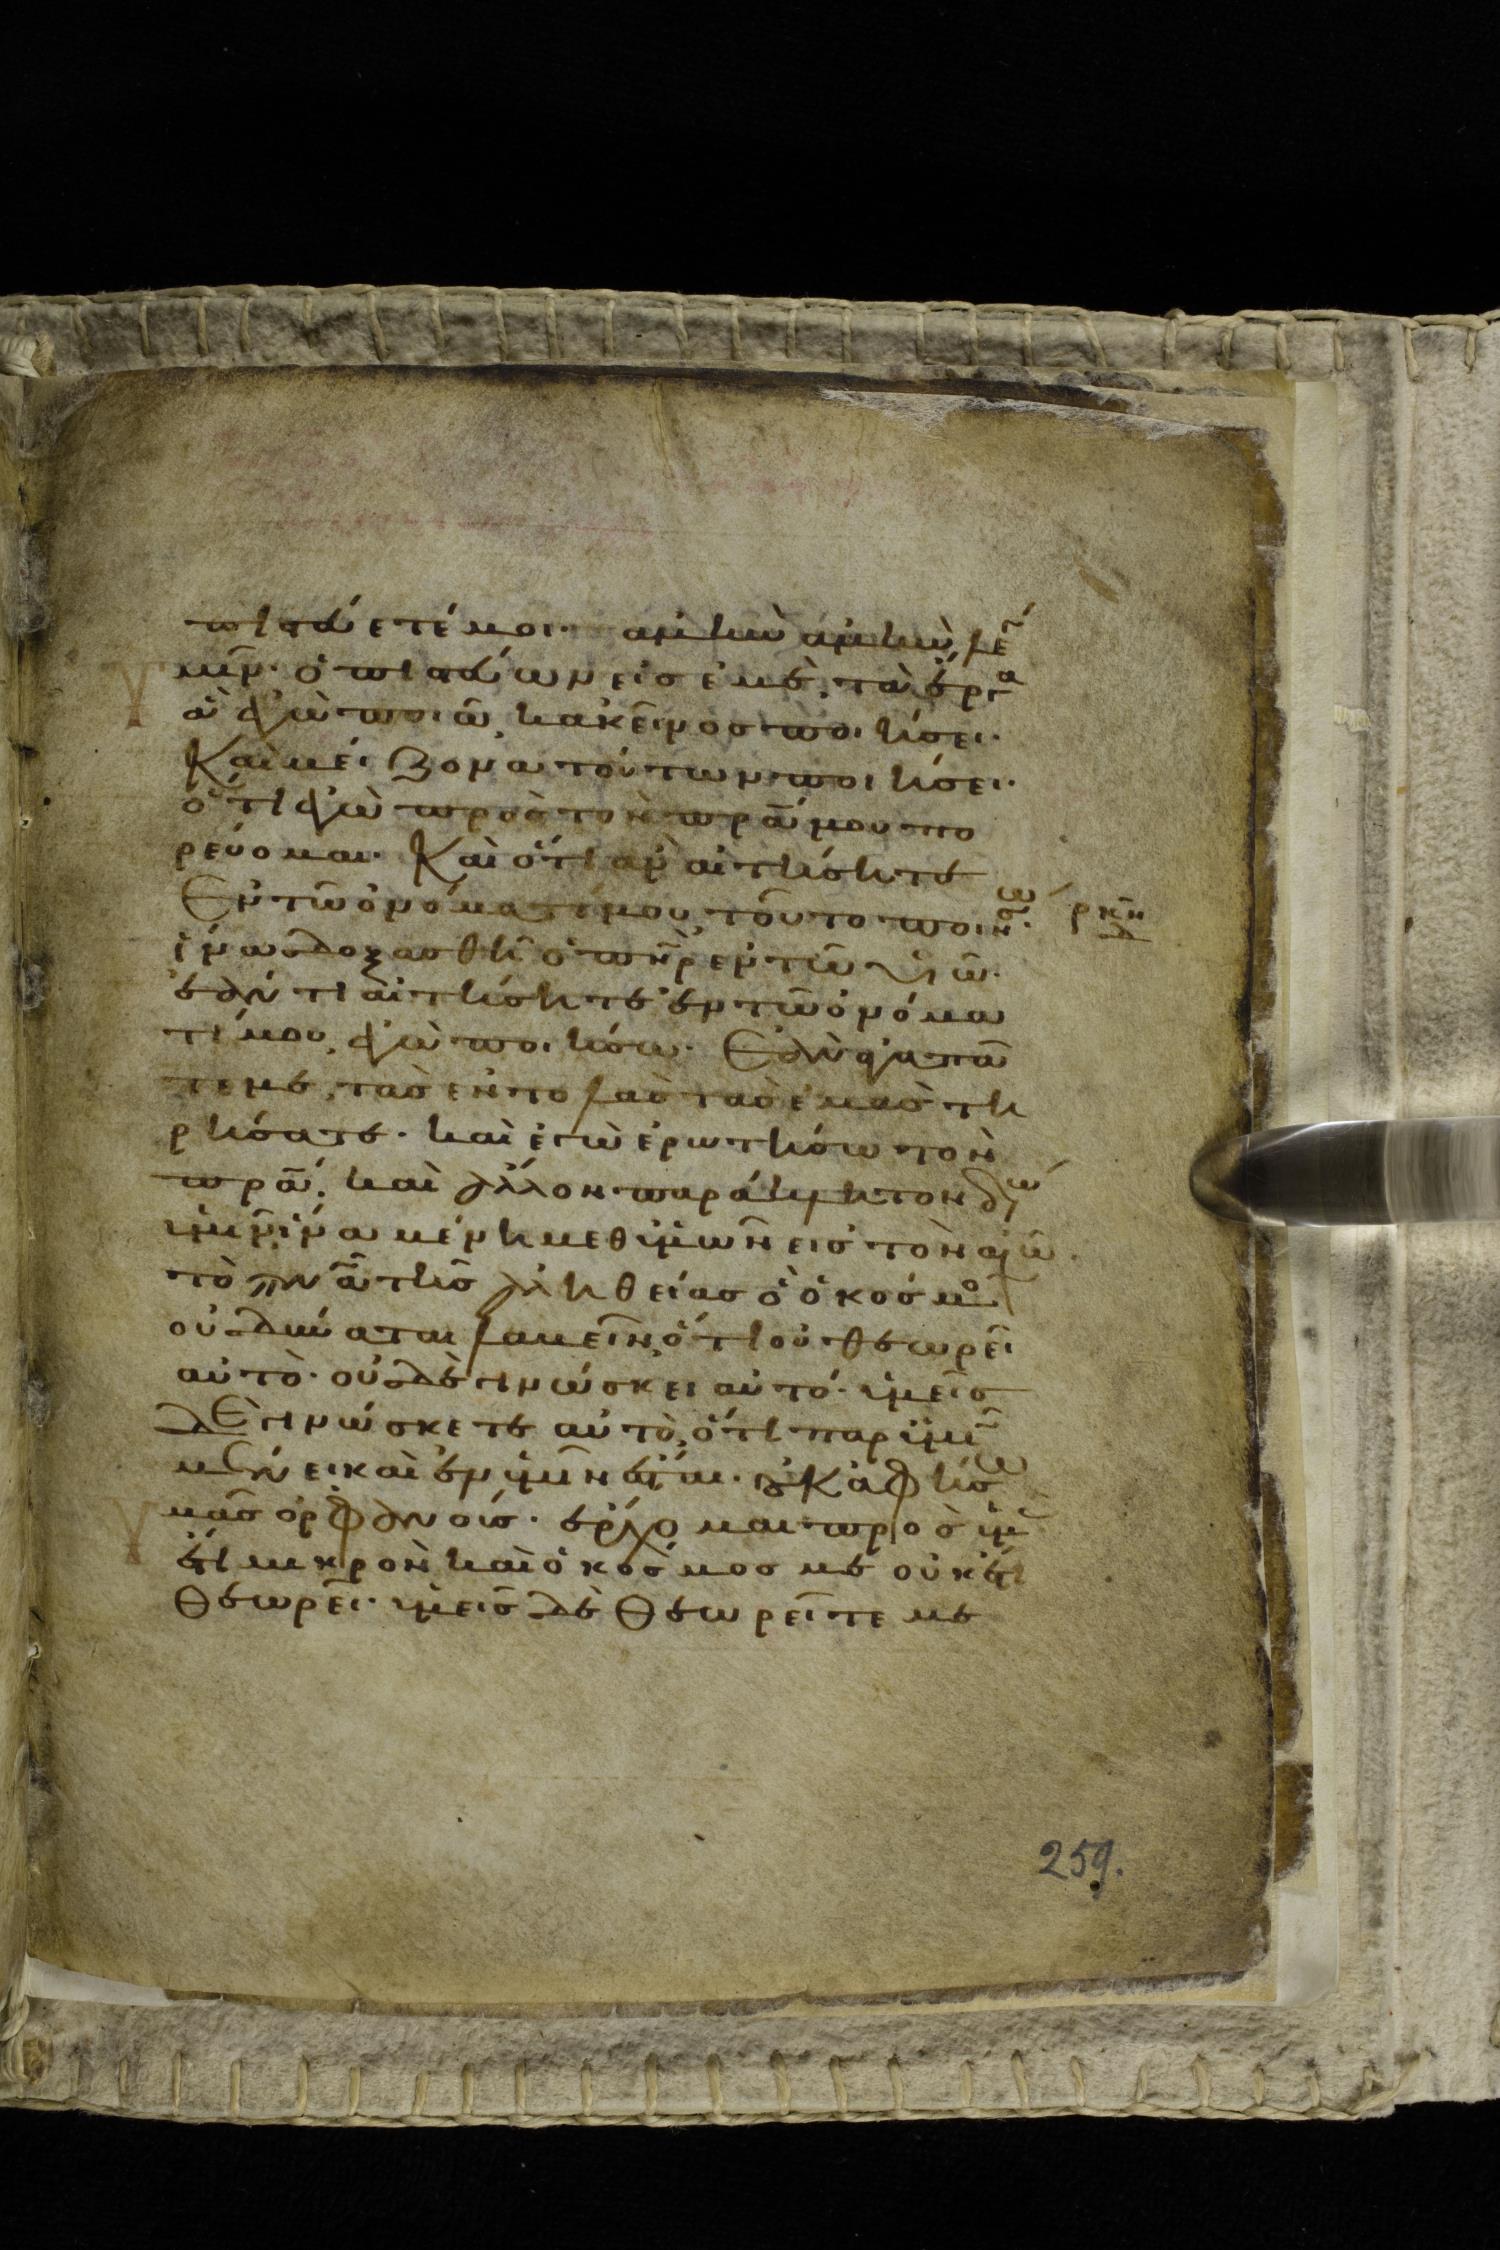 πιστεύετέ μοι· ἀμὴν ἀμὴν λέγ
ὑμῖν· ὁ πιστεύων εἰς ἐμὲ, τὰ ἔργα
ἃ ἐγὼ ποιῶ, κἀκεῖνος ποιήσει·
Καὶ μείζονα τούτων ποιήσει·
ὅτι ἐγὼ πρὸς τὸν πρ̅α̅ μου πο
ρεύομαι· Καὶ ὅτι ἂν αἰτήσητε
Ἐν τῶ ὀνόματί μου, τοῦτο ποιήσω ·
ρκη
δ
ἵνα δοξασθῆ ὁ πη̅ρ̅ ἐν τῶ υἱῶ·
ἐάν τι αἰτήσητε ἐν τῶ ὀνόμα
τί μου, ἐγὼ ποιήσω· Ἐὰν ἀγαπᾶ
τέ με, τὰς ἐντολὰς τὰς ἐμὰς τη
ρήσατε· καὶ ἐγὼ ἐρωτήσω τὸν
πρ̅α̅, καὶ ἄλλον παράκλητον δώσ
ὑμῖν ἵνα μένη μεθ ὑμῶν εἰς τὸν αἰῶ·
τὸ πν̅α̅ τῆς ἀληθείας ὃ ὁ κόσμος
οὐ δύναται λαβεῖν, ὅτι οὐ θεωρεῖ
αὐτὸ· οὐδὲ γινώσκει αὐτό· ὑμεῖς
δὲ γινώσκετε αὐτὸ, ὅτι παρ ὑμῖν
μένει καὶ ἐν ὑμῖν ἔσται· οὐκ ἀφήσω
μᾶς ὀρφανούς· ἔρχομαι πρὸς ὑμ
ἔτι μικρὸν καὶ ὁ κόσμος με οὐκ ἔτι
θεωρεῖ· ὑμεῖς δὲ θεωρεῖτέ με
259.